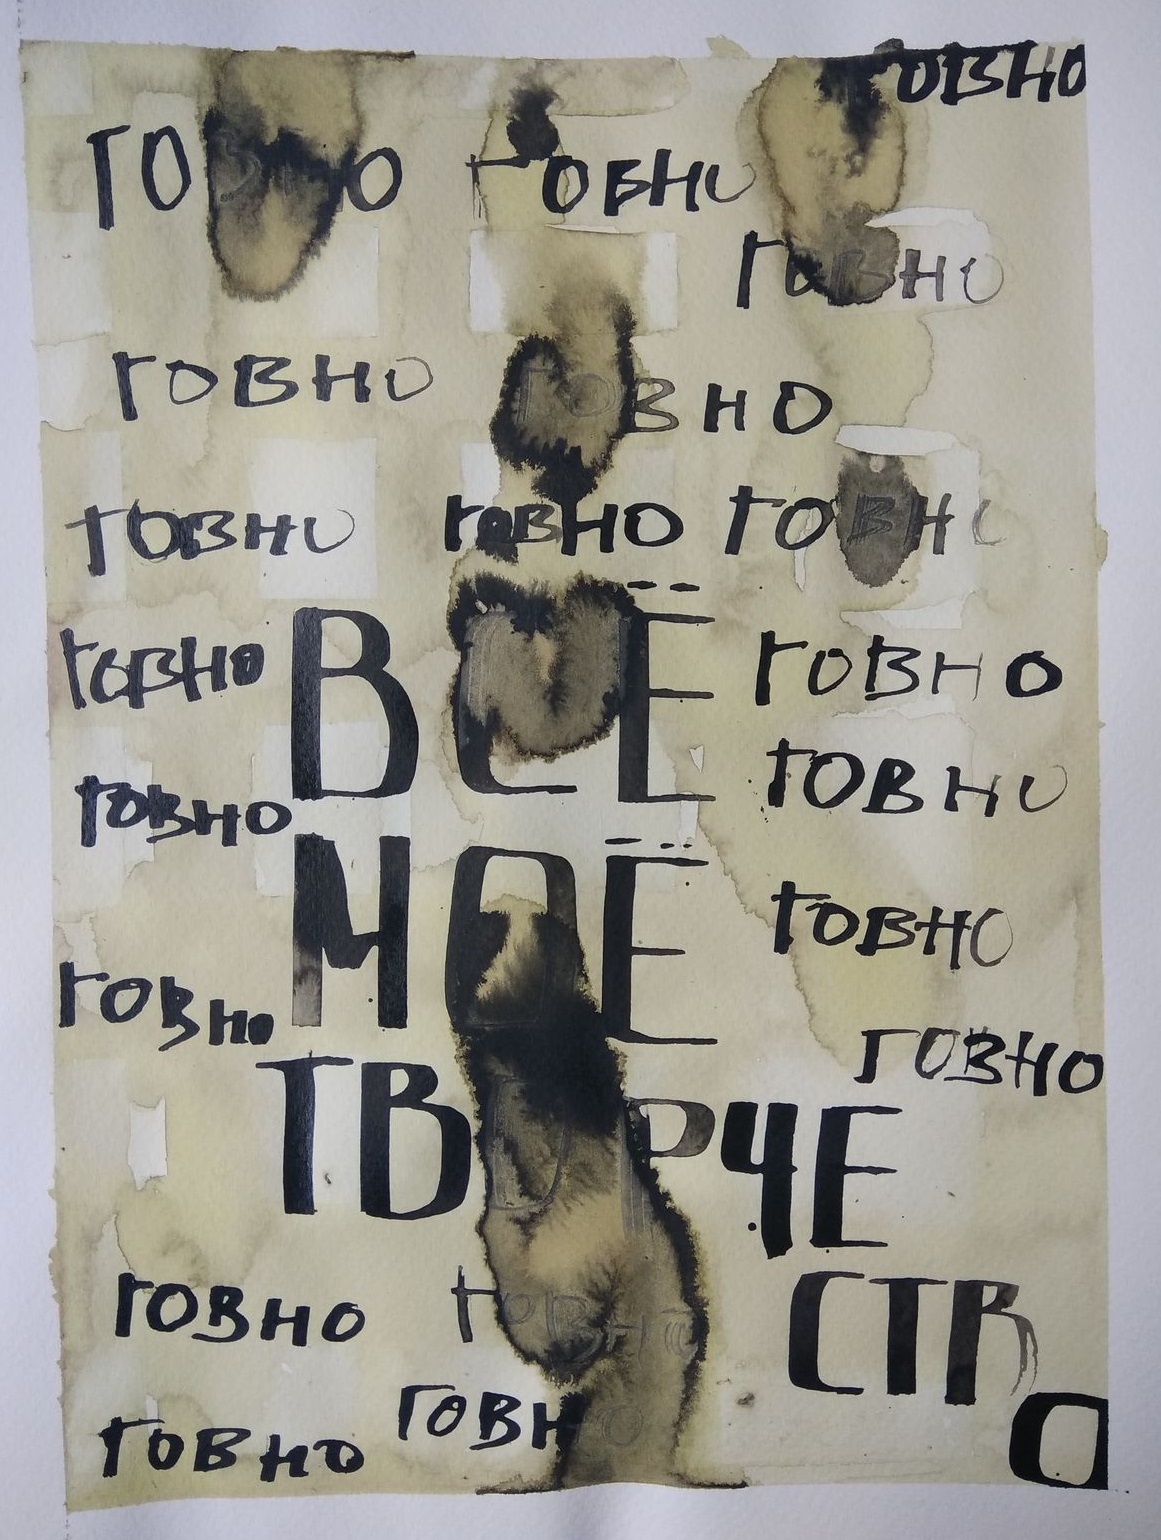 ГОВНО
ГОВНО ГОВНО
ГОВНО
ГОВНО ГОВНО
ГОВНО ГОВНО ГОВНО
ГОВНО ВСЁ ГОВНО
ГОВНО ГОВНО
МОЁ ГОВНО
ГОВНО ГОВНО
ТВОРЧЕ
СТВО
ГОВНО ГОВНО
ГОВНО ГОВНО